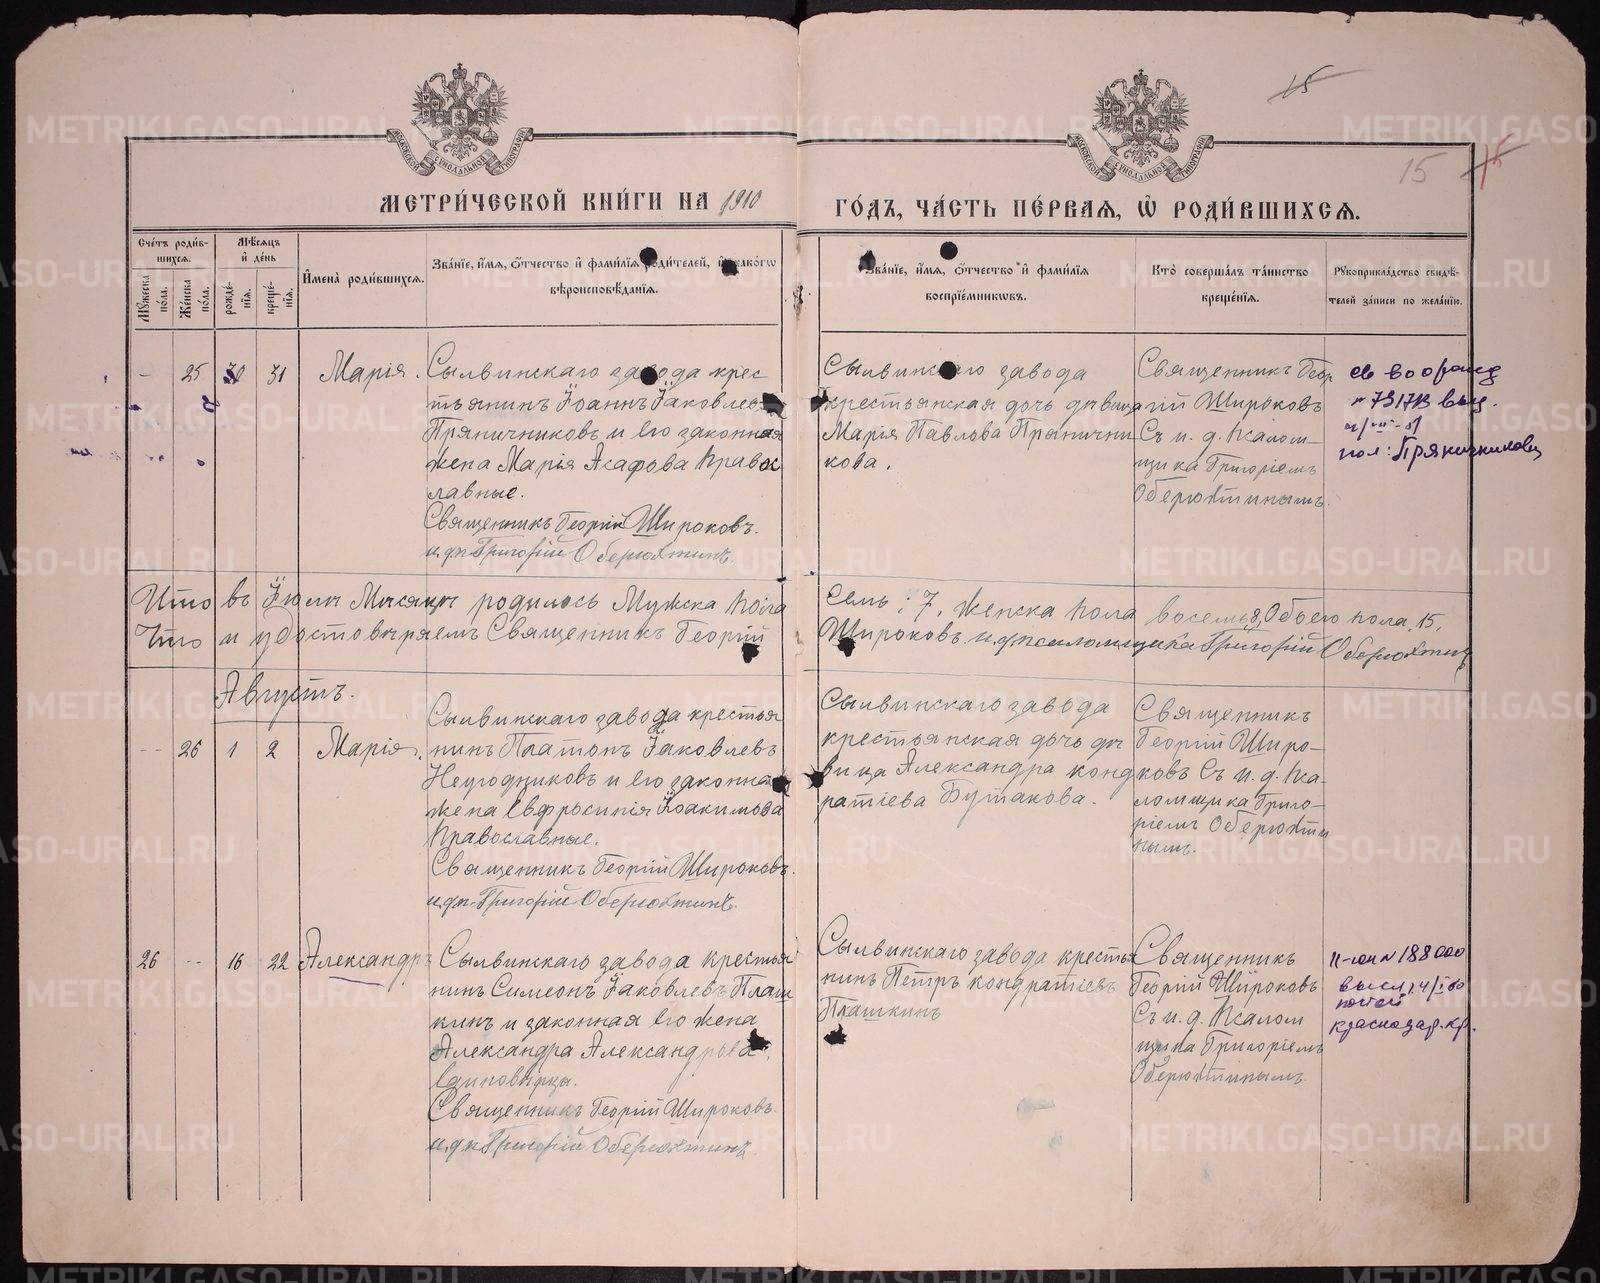 15
15
15
МОСКОВСКОЙ СѴНОДАЛЬНОЙ ТИПОГРАФІИ
МОСКОВСКОЙ СѴНОДАЛЬНОЙ ТИПОГРАФІИ
МЕТРИ́ЧЕСКОЙ КНИ́ГИ НА 1910
ГО́ДЪ, ЧА́СТЬ ПЕ́РВАЯ, Ѡ҆ РОДИ́ВШИХСЯ.
Сче́тъ роди́в-
шихся.
Мꙋ́жеска по́ла.
Же́нска по́ла.
Мѣ́сяцъ
и҆ де́нь
рожде́-
нїя.
креще́-
нїя.
И҆мена̀ роди́вшихся.
Зва́нїе, и҆́мя, ѻ҆́тчество и҆ фами́лїя роди́телей, и҆ како́гѡ
вѣроисповѣ́данїя.
Зва́нїе, и҆́мя, ѻ҆́тчество и҆ фами́лїя
воспрїе́мникѡвъ.
Кто̀ соверша́лъ та́инство
креще́нїя.
Рꙋкоприкла́дство свидѣ́-
телей за́писи по жела́нїю.
- 25 30 31 Марія.
Сылвинскаго завода крес
тьянинъ Іоаннъ Іаковлевъ
Пряничниковъ и его законная
жена Марія Асафова Право
славные.
Священникъ Георгій Широковъ.
и.д.п. Григорій Оберюхтинъ.
Сылвинскаго завода
крестьянская дочь дѣвица
Марія Павлова Прянични
кова.
Священникъ Геор
гій Широковъ
Съ и. д. Псалом-
щика Григоріемъ
Оберюхтинымъ.
св во о рожд
выд.
Пряничникова
Итого въ Іюлѣ Мѣсяцѣ родилось Мужска пола
Семь: 7, женска пола восемь 8, Обоего пола, 15,
Что и удостовѣряемъ Священникъ Георгій
Широковъ. и.д. псаломщика Григорій Оберюхтинъ
Августъ.
-- 26 1 2 Марія.
Сылвинскаго завода крестья
нинъ Платонъ Іаковлевъ
Неугодниковъ и его законная
жена Евфросинія Іоакимова
Православные.
Священникъ Георгій Широковъ.
и.д.п. Григорій Оберюхтинъ.
Сылвинскаго завода
крестьянская дочь дѣ
вица Александра Конд
ратіева Бутакова.
Священникъ
Георгій Широ-
ковъ Съ и. д. Пса-
ломщика Григо-
ріемъ Оберюхти
нымъ.
26 -- 16 22 Александръ
Сылвинскаго завода крестья
нинъ Симеонъ Іаковлевъ Плаш
кинъ и законная его жена
Александра Александрова,
Единовѣрцы.
Священникъ Георгій Широковъ.
и.д.п. Григорій Оберюхтинъ.
Сылвинскаго завода крестья
нинъ Петръ Кондратіевъ
Плашкинъ
Священникъ
Георгій Широковъ
Съ и. д. Псалом
щика Григоріемъ
Оберюхтинымъ.
188000
почтой
Краснодар. кр.
METRIKI.GASO-URAL.RU